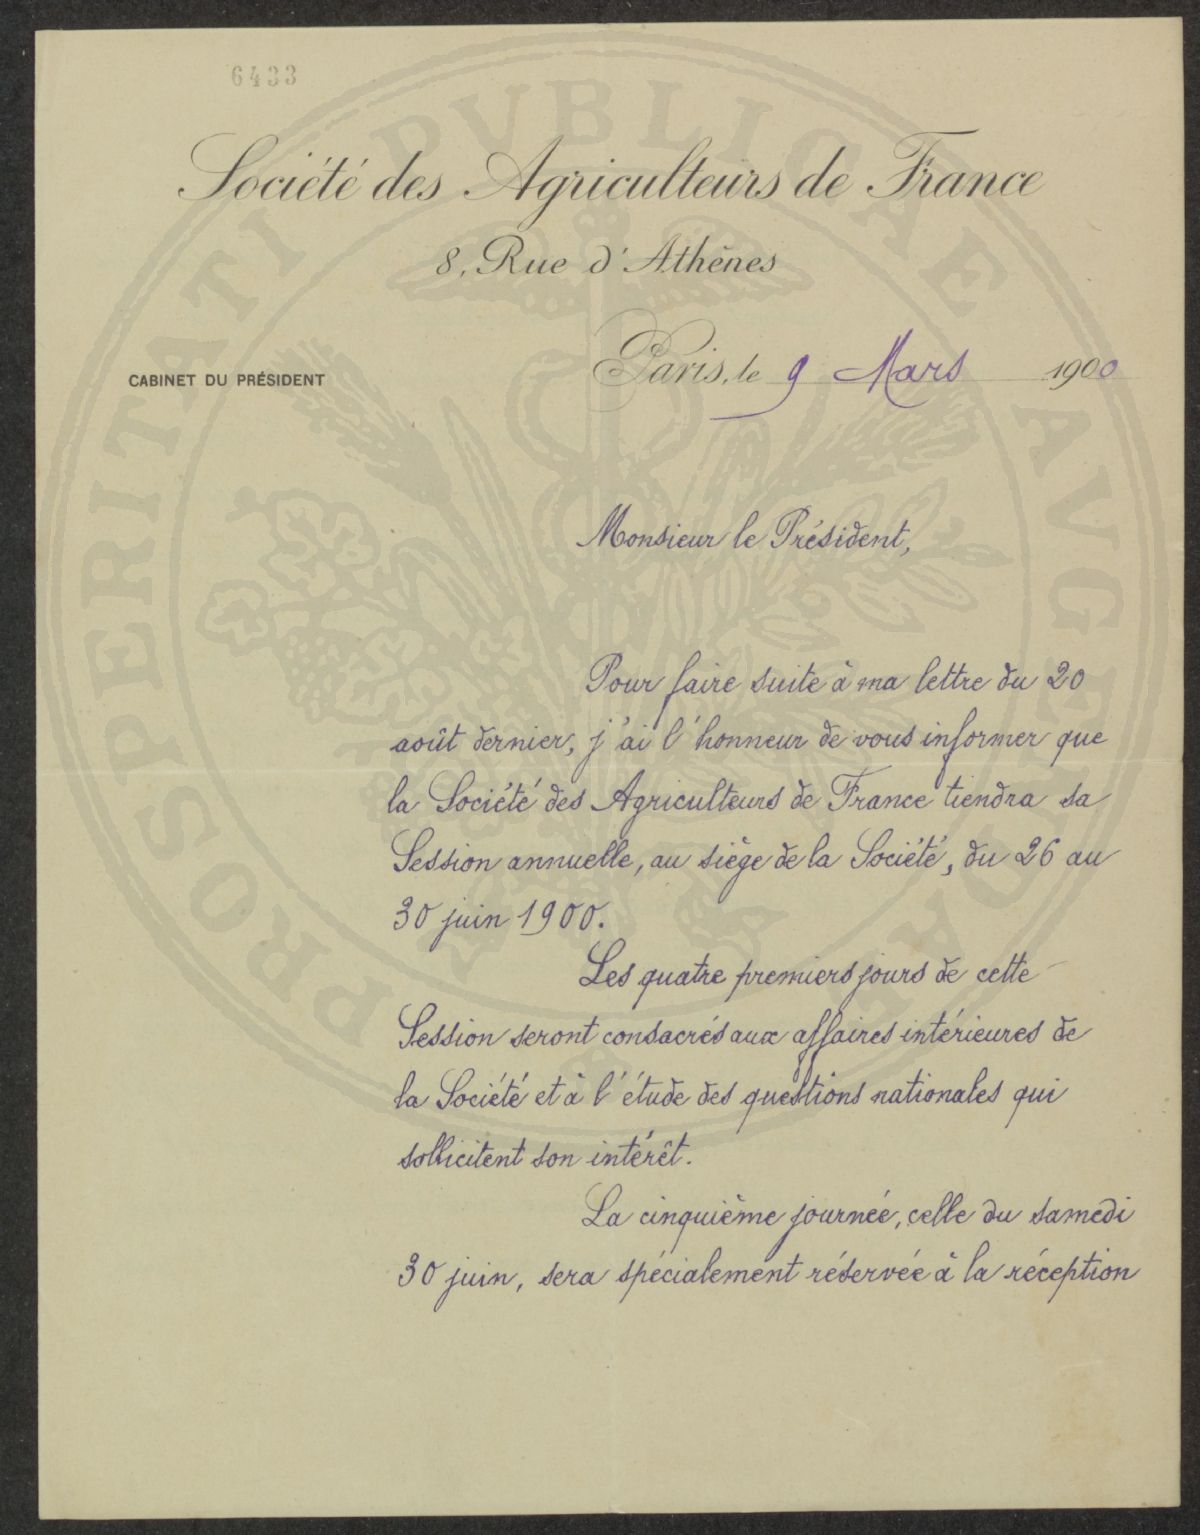 6433
Société des Agriculteurs de France
8, Rue d'Athènes
CABINET DU PRÉSIDENT
Paris, le 9 Mars 1900
Monsieur le Président,
Pour faire suite à ma lettre du 20
août dernier, j'ai l'honneur de vous informer que
la Société des Agriculteurs de France tiendra sa
Session annuelle, au siège de la Société, du 26 au
30 juin 1900.
Les quatre premiers jours de cette
Session seront consacrés aux affaires intérieures de
la Société et à l'étude des questions nationales qui
sollicitent son intérêt.
La cinquième journée, celle du samedi
30 juin, sera spécialement réservée à la réception
PROSPERITATI PVBLICAE AVGENDA